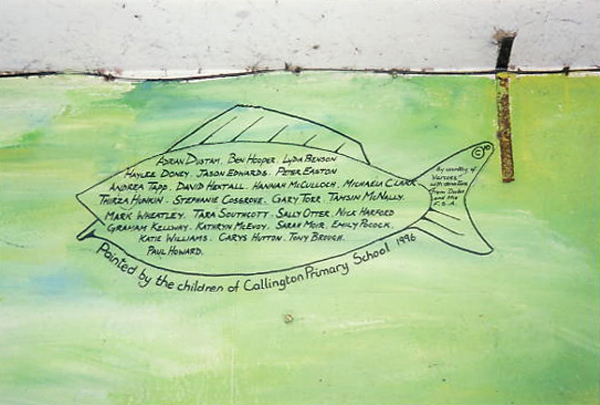 Adrian Dustam. Ben Hooper. Lydia Benson
Haylee Doney. Jason Edwards. Peter Easton
Andrea Tapp. David Hextall. Hannah McCulloch. Michaela Clark
Thirza Hunkin. Stephanie Cosgrove. Gary Torr. Tamsin McNally.
Mark Wheatley. Tara Southcott. Sally Otter. Nick Harford
Graham Kellway. Kathryn McEvoy. Sarah Moir. Emily Pocock.
Katie Williams. Carys Hutton. Tony Brough.
Paul Howard.
Painted by the children of Callington Primary School 1996
©
By courtesy of
with
from
and the